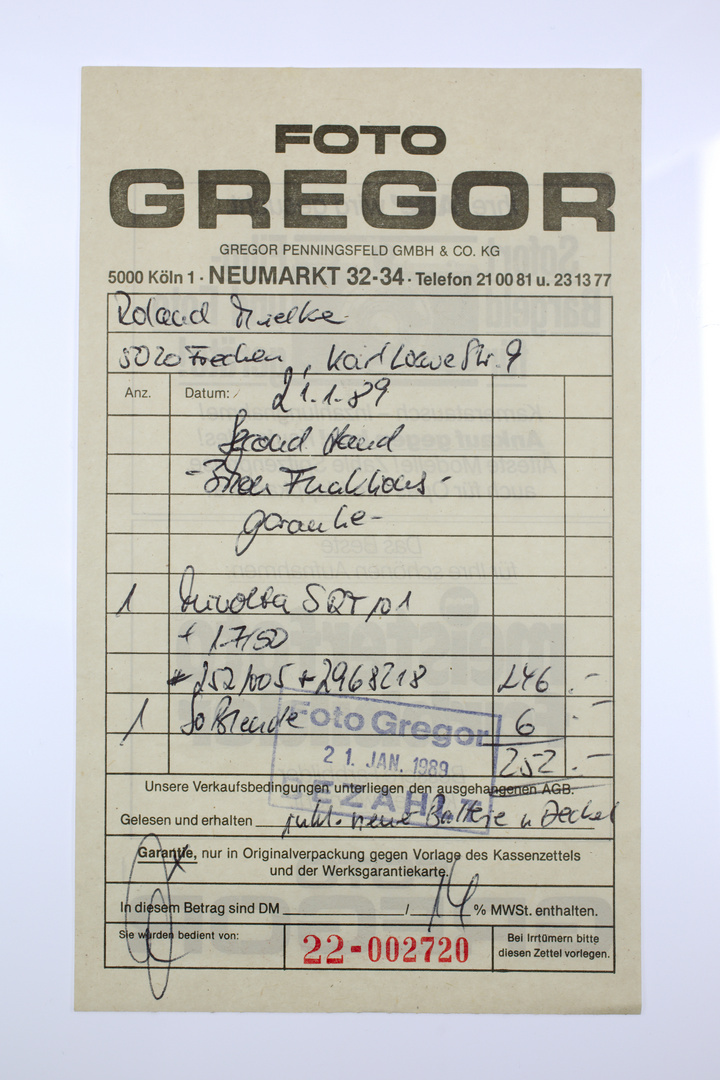 FOTO
GREGOR
GREGOR PENNINGSFELD GMBH & CO. KG
5000 Köln 1 · NEUMARKT 32-34 · Telefon 21 00 81 u. 23 13 77
Roland Mielke
5020 Frechen, Karl Loewe Str. 9
Anz. Datum: 21.1.89
Second Hand
Funktions-
garantie-
1 Minolta SRT 101
+ 1.7/50
246.-
1 SoBlende 6.-
Foto Gregor
252.-
21. JAN. 1989
Unsere Verkaufsbedingungen unterliegen den ausgehangenen AGB.
BEZAHLT
Gelesen und erhalten inkl. neue Batterie u Deckel
Garantie, nur in Originalverpackung gegen Vorlage des Kassenzettels
und der Werksgarantiekarte.
In diesem Betrag sind DM / 14 % MWSt. enthalten.
Sie wurden bedient von:
22-002720
Bei Irrtümern bitte
diesen Zettel vorlegen.